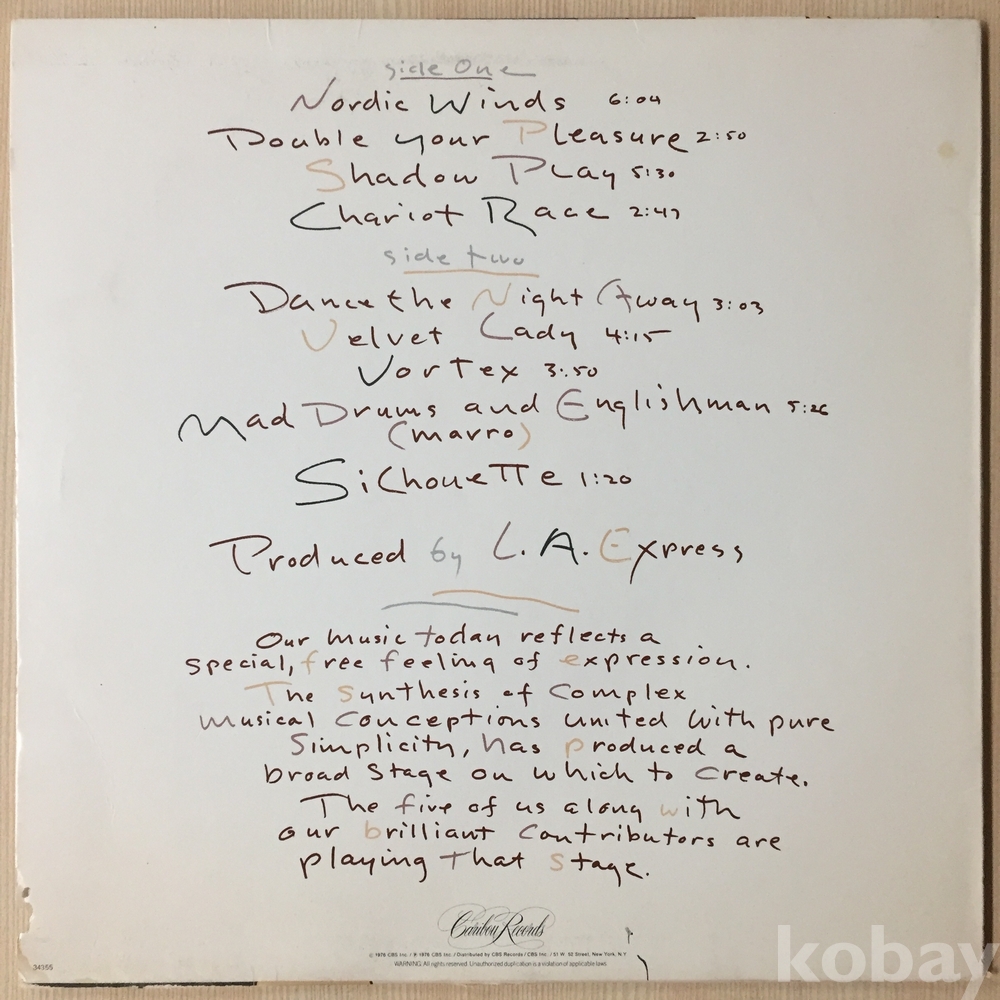 side One
Nordic Winds 6:04
Double your Pleasure 2:50
Shadow Play 5:30
Chariot Race 2:47
side two
Dance the Night Away 3:03
Velvet Lady 4:15
Vortex 3:50
Mad Drums and Englishman 5:26
(mavro)
Silhouette 1:20
Produced by L.A. Express
Our music today reflects a
special, free feeling of expression.
The synthesis of complex
musical conceptions united with pure
simplicity, has produced a
broad stage on which to create.
The five of us along with
our brilliant contributors are
playing that stage.
Caribou Records
© 1976 CBS Inc. / ℗ 1976 CBS Inc. / Distributed by CBS Records / CBS Inc. / 51 W. 52 Street, New York, N.Y.
WARNING: All rights reserved. Unauthorized duplication is a violation of applicable laws.
34355
kobay